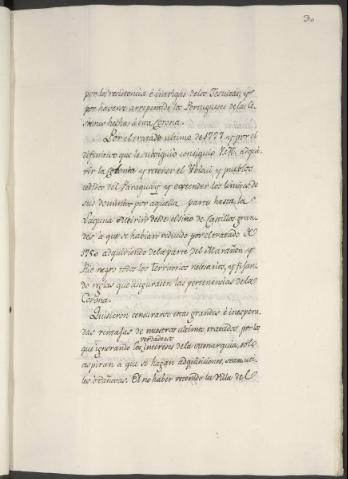 por la resistencia é intrigas de los Jesuitas, y
por haverse arrepentido los Portugueses de las ce-
siones hechas á esta Corona.
Por el tratado ultimo de 1777 y por el
definitivo que le subsiguió consiguió V.M. adqui-
rir la Colonia y retener el Ybicui y pueblos
cedidos del Paraguay y extender los limites de
sus dominios por aquella parte hasta la
Laguna Merin desde el sitio de Castillos gran-
des á que se habian reducido por el tratado de
1750 adquiriendo de la parte del Marañon y
Rio negro todos los Terrenos necesarios, y fixan-
do reglas que aseguraren las pertenencias de la
Corona.
Quisieron censurarse estas grandes é inespera-
das ventajas de nuestros ultimos tratados por los
verdaderos
que ignorando los intereses de la monarquia, solo
aspiran á que se hagan adquisiciones, sean uti-
les ó dañosas. El no haber retenido la Villa del